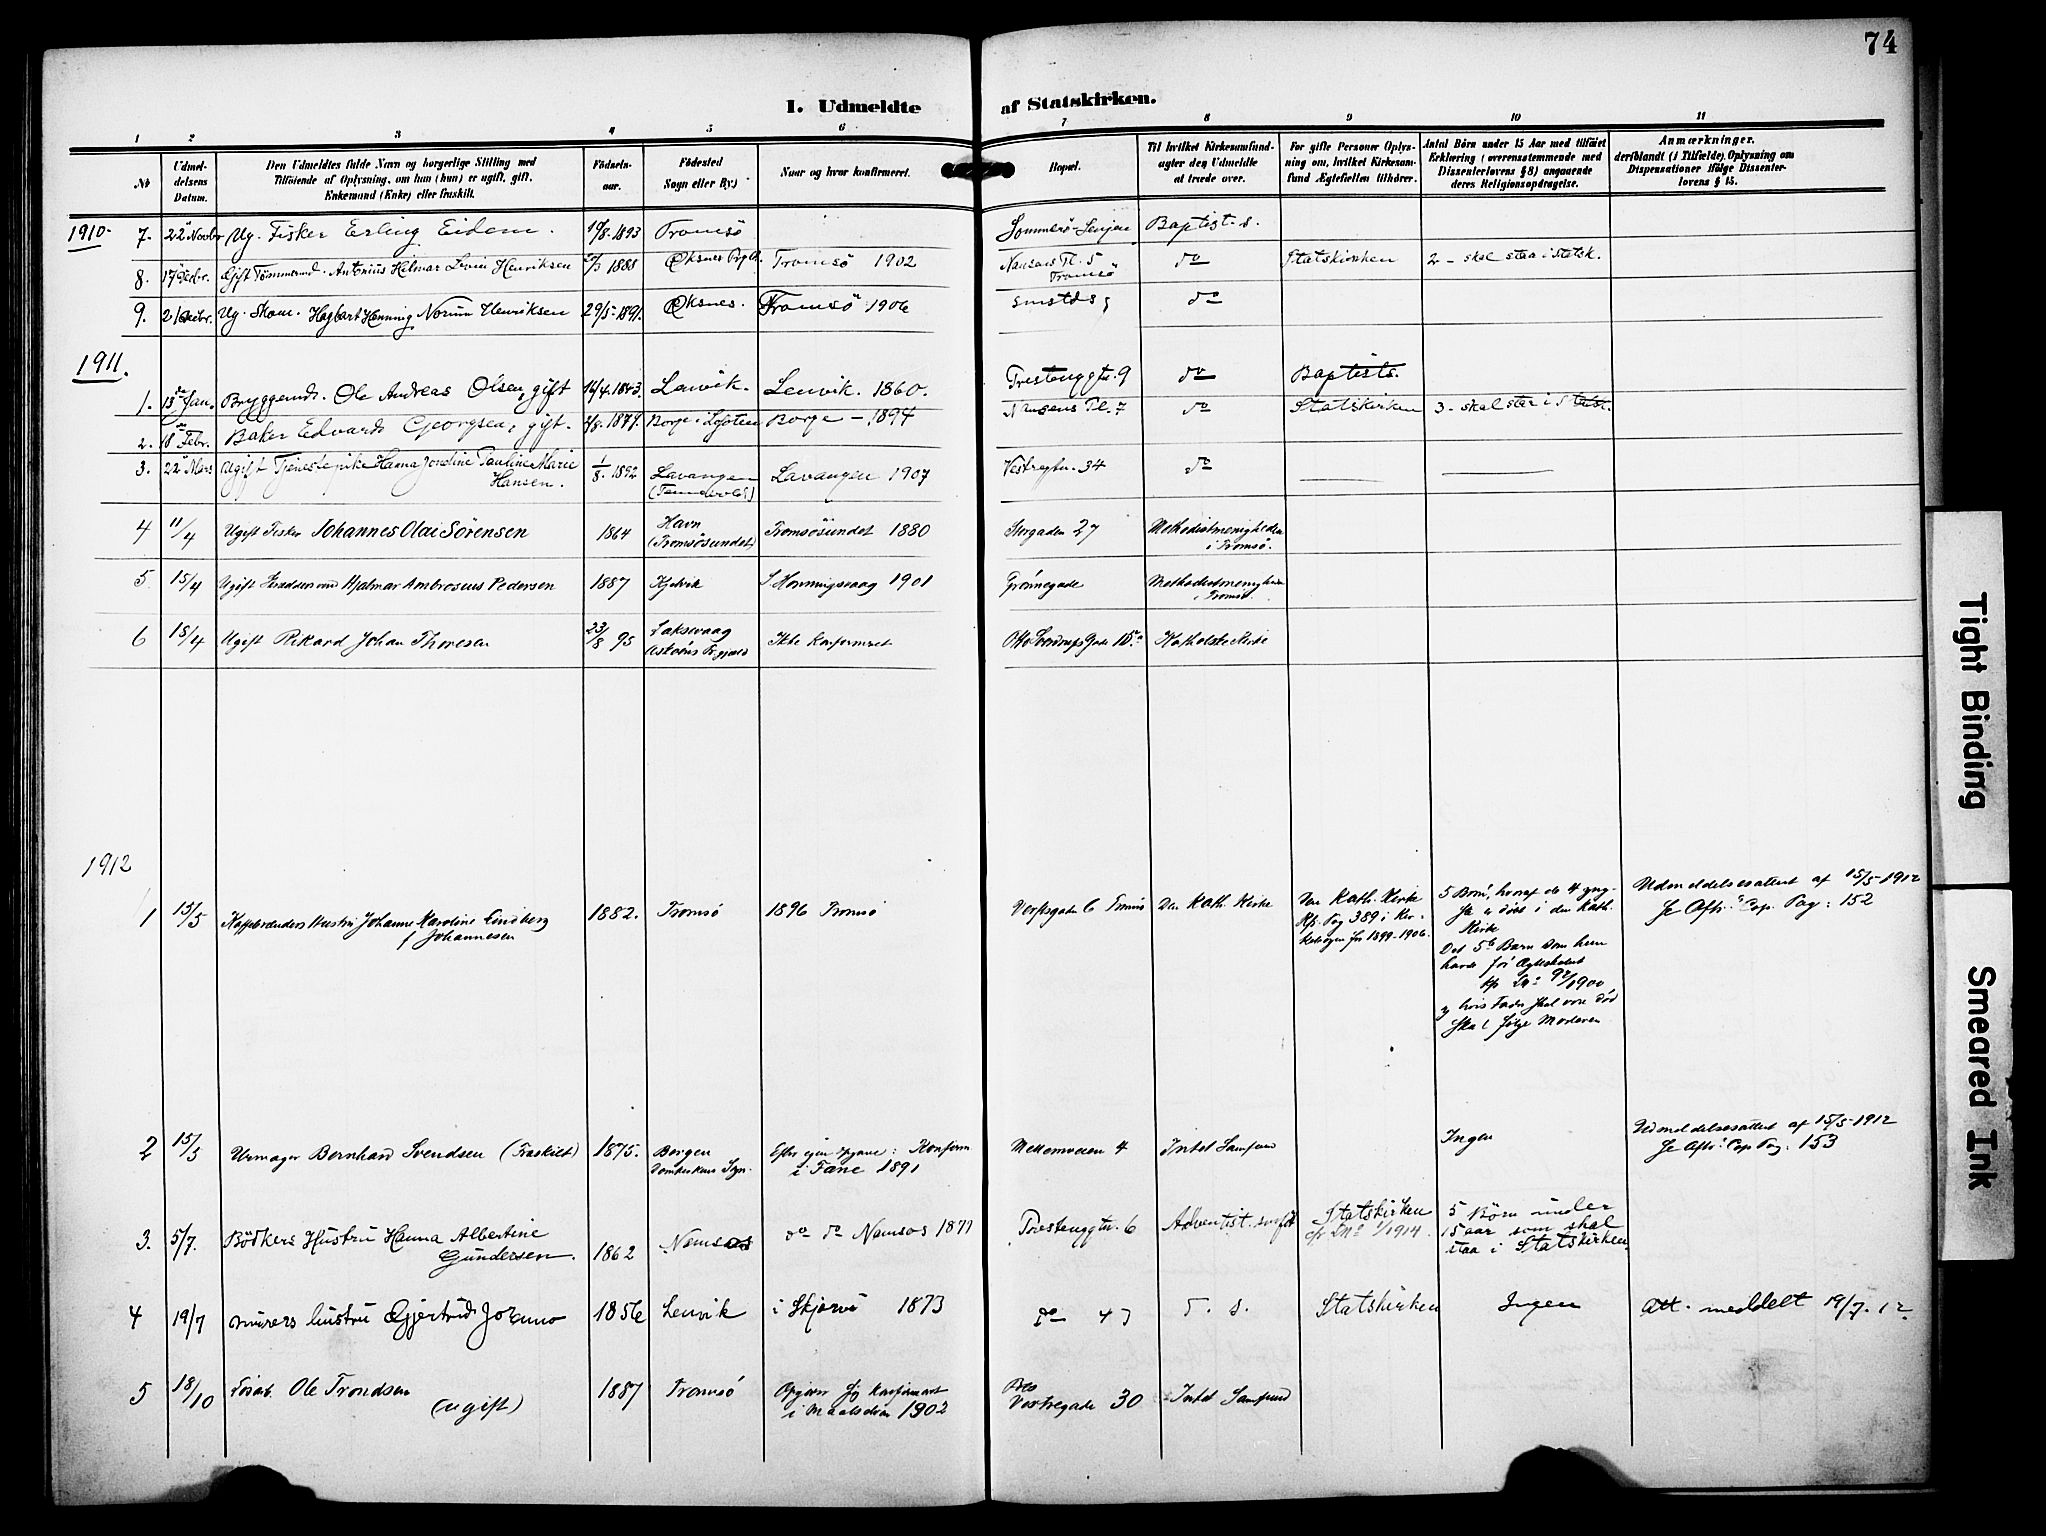 74
I. Udmeldte af Statskirken.
1 2 3 4 5 6 7 8 9 10 11
No
Udmel-
delsens
Datum.
Den Udmeldtes fulde Navn og borgerlige Stilling med
Tilföiende af Oplysning, om han (hun) er ugift, gift,
Enkemand (Enke) eller fraskilt.
Födsels-
aar.
Födested
Sogn eller By.)
Naar og hvor konfirmeret.
Bopæl.
Til hvilket Kirkesamfund
agter den Udmeldte
at træde over.
For gifte Personer Oplys-
ning om, hvilket Kirkesam-
fund Ægtefællen tilhörer.
Antal Börn under 15 Aar med tilföiet
Erklæring (overensstemmende med
Dissenterlovens § 8) angaaende
deres Religionsopdragelse.
Anmærkninger.
deriblandt (i Tilfælde) Oplysning om
Dispensationer ifölge Dissenter-
lovens § 15.
1910.
7. 22 Novbr Ug. Fisker Erling Eidem. 19/8. 1893 Tromsö Sommerö-Senjen Baptist. s.
8. 17 Decbr. Gift Tömmermd. Antonius Hilmar Henriksen 1888 Øksnes Tromsö 1902 Nansens Pl. 5 Tromsö do Statskirken 2 - skal staa i Statsk.
9. 21 Decbr. Ug. Skom. Hagbart Henning Norum Henriksen 29/5-1891. Øksnes. Tromsö 1906 do
1911.
1. 13 Jan. Bryggemd. Ole Andreas Olsen, gift 14/4. 1843. Lenvik. Lenvik. 1860. 9 do Baptists.
2. 18 Febr. Baker Edvard Georgsen, gift. /8. 1879. Borge i Lofoten Borge - 1894 Nansens Pl. 7 do Statskirken 3 - skal staa i Statsk.
3. 22 Mars Ugift Tjenestepike Hanna Jondine Pauline Marie
Hansen. 1/8. 1892 Lavangen Lavangen 1907 Vestregtn. 34 do
4 11/4 Ugift Fisker Johannes Olai Sörensen 1864 Havn
(Tromsösundet) Tromsösundet 1880 Storgaden 27 Methodistmenigheden
i Tromsö.
5 15/4 Ugift Hjalmar Ambrosius Pedersen 1887 Kjelvik Honningsvaag 1901 Grönnegade Methodistmenigheden
i Tromsö.
6 15/4 Ugift Rikard Johan Thoresen 23/8 95 Laksevaag Ikke konfirmeret Otto Sverdrups Gade 15 Katholske Kirke
1912
1 15/5 Hustru Johanne Karoline Lindberg
f Johannesen 1882. Tromsö 1896 Tromsö Verftsgaden 6 Den Kath. Kirke Den Kath. Kirke
Kfr. Pag 389 i Kir-
kebogen for 1899-1906.
5 Börn, hvoraf de 4 yng-
ste er döbt i den Kath.
Kirke
Det 5te Barn som hun
havde för Ægteskabet
kfr 92/1900
og hvis Fader skal være död
skal fölge Moderen
Udmeldelsesattest af 15/5-1912
Se Afsk. Cop. Pag: 152
2 15/5 Urmager Bernhard Svendsen (Fraskilt) 1875. Bergen
Domkirkens Efter egen Opgave: Konfirm
i Fane 1891 Mellemveien 4 Intet Samfund Ingen Udmeldelsesattest af 15/5-1912
Se Afsk. Cop. Pag: 153
3. 5/7. Bödkers Hustru Hanna Albertine
Gundersen. 1862 Namsos do do Namsos 1877 6 Adventist. Statskirken
1/1914. 5 Börn under
15 aar som skal
staa i Statskirken.
4 19/7 Murers hustru Gjertrud 1856 Lenvik i Skjervö 1873 do s. Statskirken Ingen Att. meddelt 19/7. 12.
5 18/10 Ole Trondsen
(ugift) 1887 Tromsö Opgiver sig konfirmert
i Maalselven 1902 Vestregade 30 Intet Samfund
Tight Binding
Smeared Ink